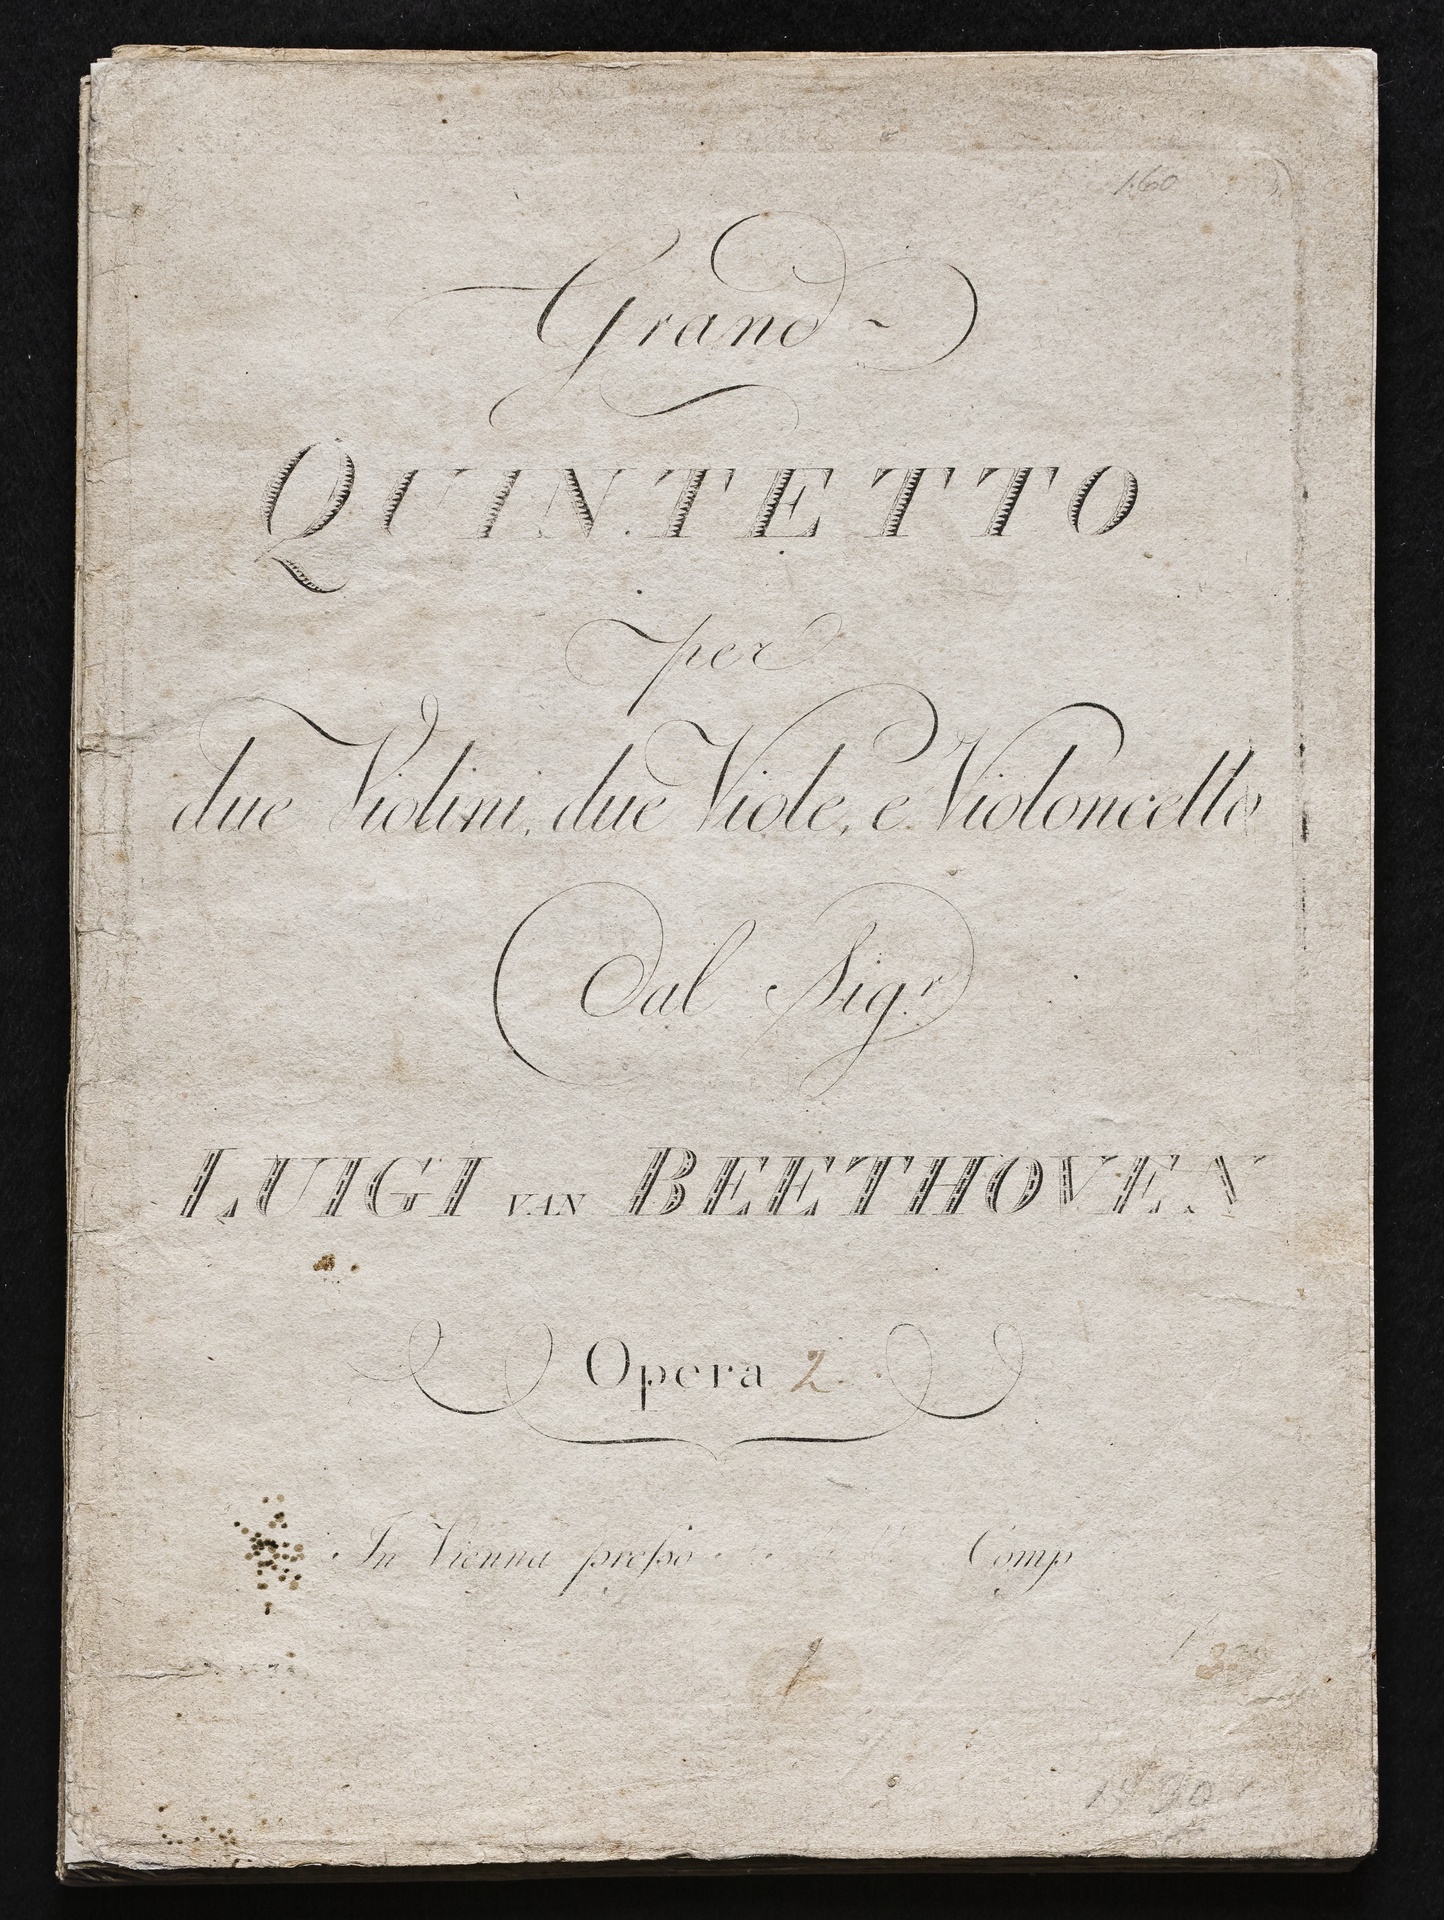 160
Grand
QUINTETTO
per
due Violini, due Viole, e Violoncello
Dal Sigr.
LUIGI VAN BEETHOVEN
Opera 2.
In Vienna preſso Comp